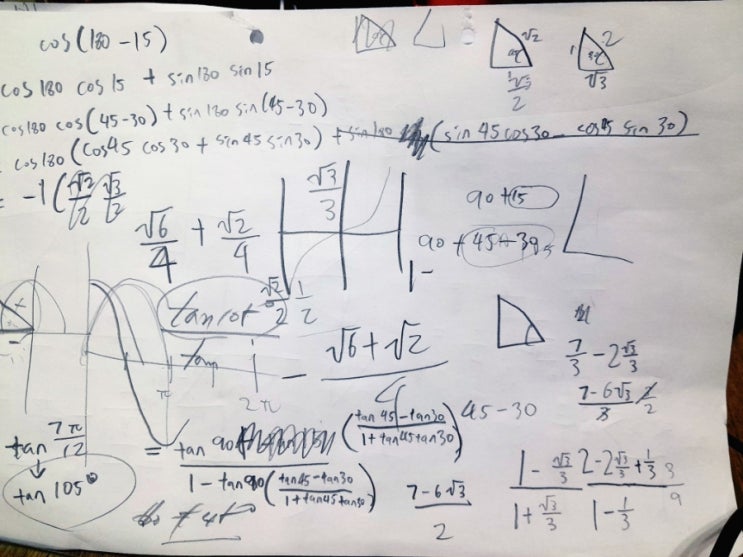 cos(180-15)
cos180 cos15 + sin180 sin15
cos180 cos(45-30) + sin180 sin(45-30)
cos180 (cos45 cos30 + sin45 sin30) + sin180 (sin45 cos30 - cos45 sin30)
= -1 (√2/2 √3/2
√2/2 1/2
√6/4 + √2/4
- √6+√2/4
√2
45
1/√2
2
1
2
30
√3
√3/3
90+15
90+45-30
1-
tan rot
tan
π
2π
tan 7π/12
↓
tan 105°
= tan 90 (tan45-tan30/1+tan45tan30)
1-tan90 (tan45-tan30/1+tan45tan30)
45-30
7/3 - 2√3/3
7-6√3/3 2/2
7-6√3/2
1-√3/3
1+√3/3
2-2√3/3+1/3
1-1/3
9